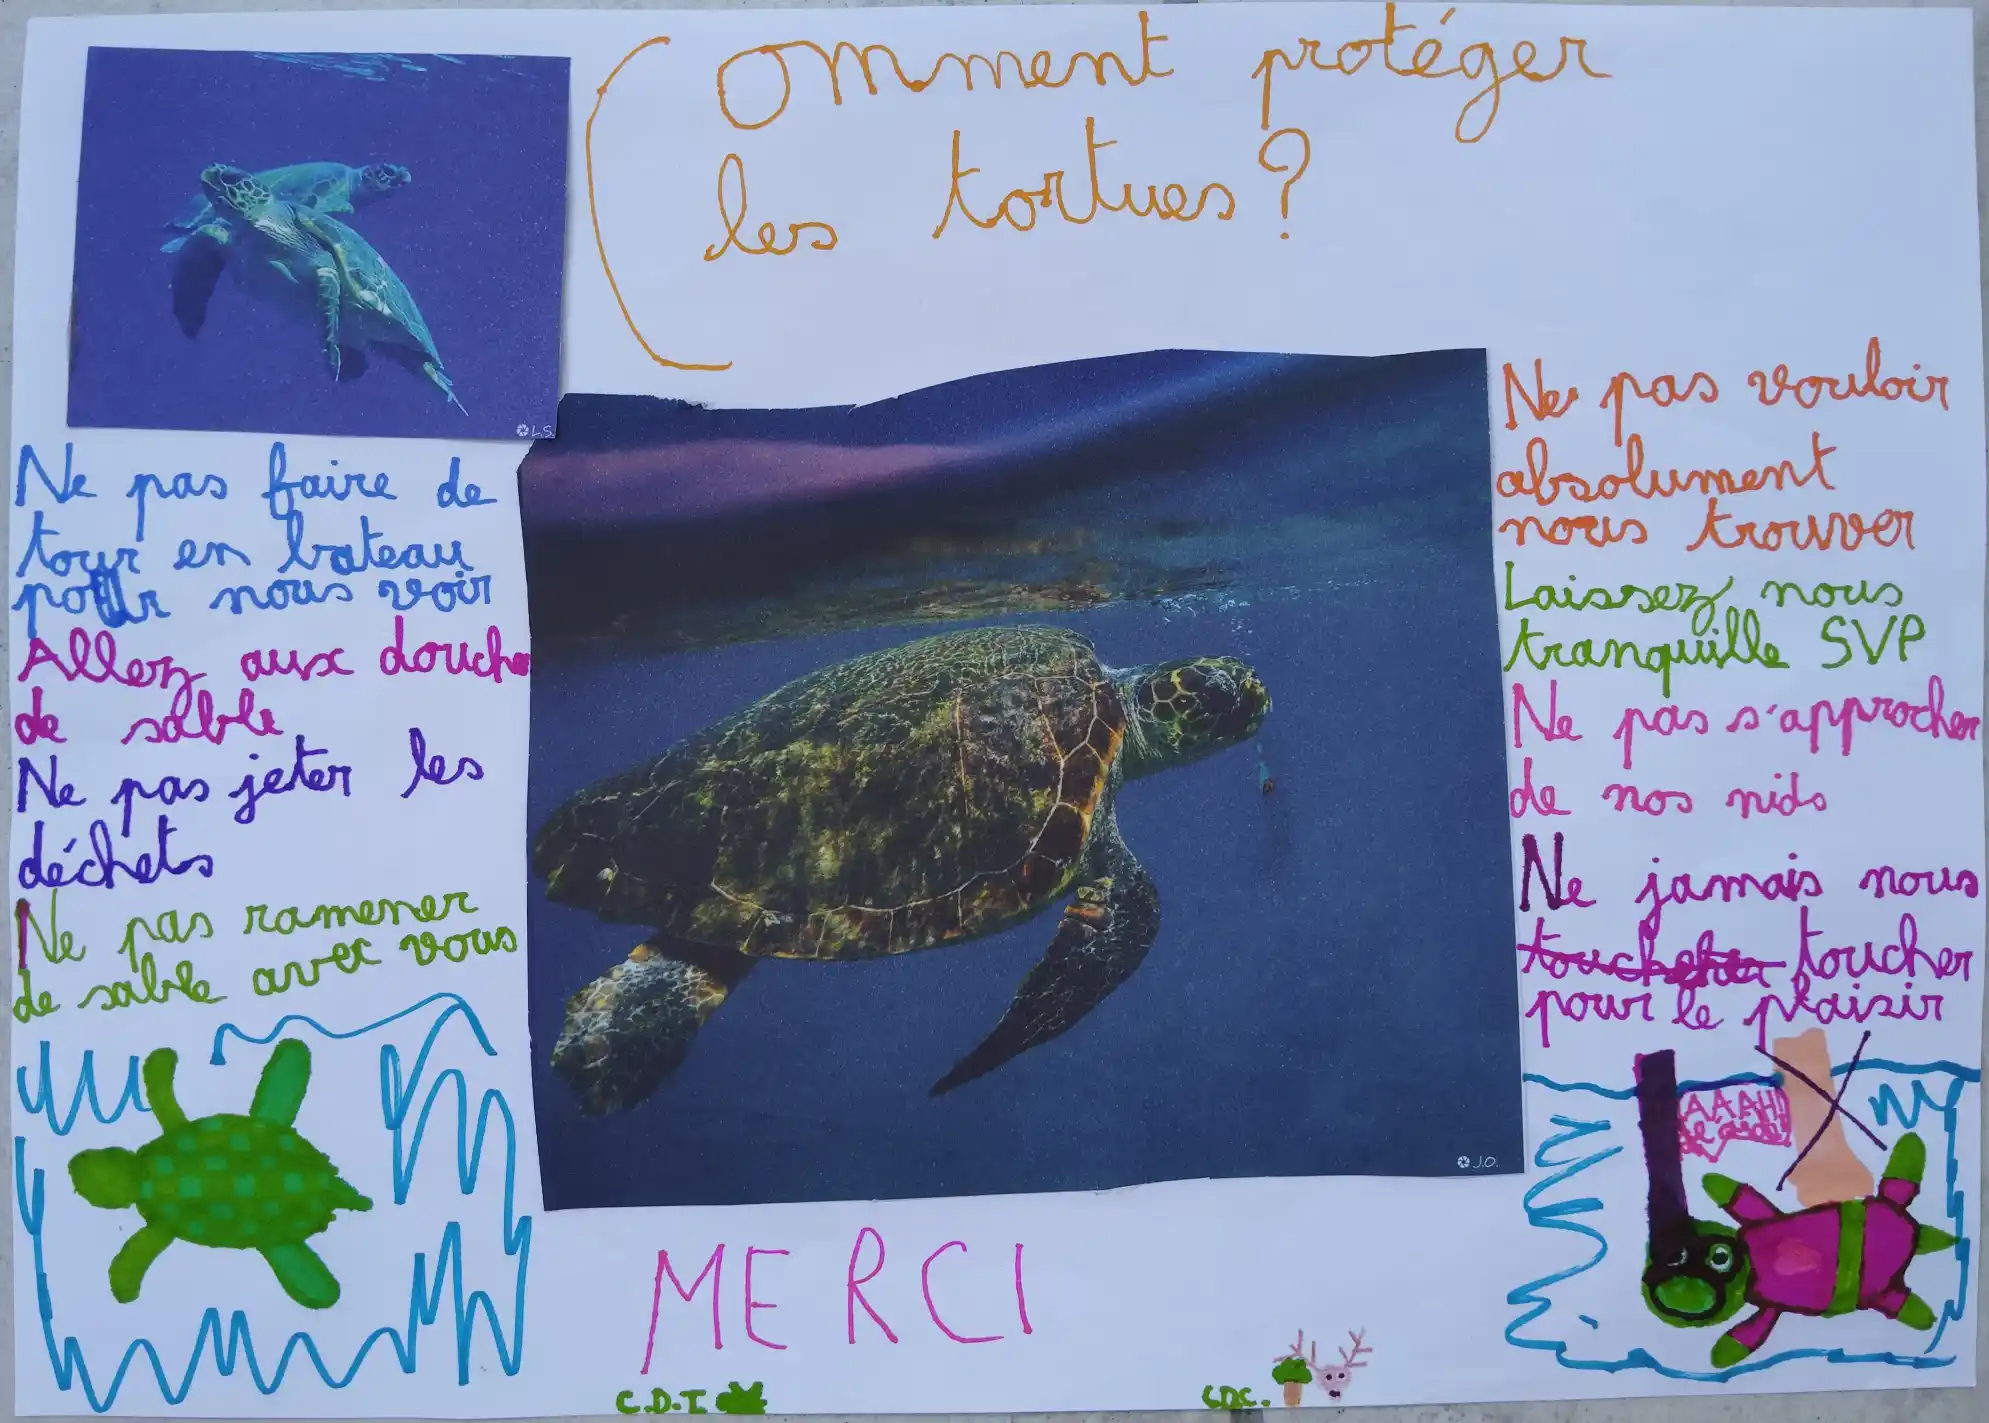 Comment protéger
les tortues ?
L.S.
Ne pas faire de
tour en bateau
pour nous voir
Allez aux douche
de sable
Ne pas jeter les
déchets
Ne pas ramener
de sable avec vous
Ne pas vouloir
absolument
nous trouver
Laissez nous
tranquille SVP
Ne pas s'approcher
de nos nids
Ne jamais nous
toucher
pour le plaisir
AAAH!
J.O.
MERCI
C.D.I
CDC.